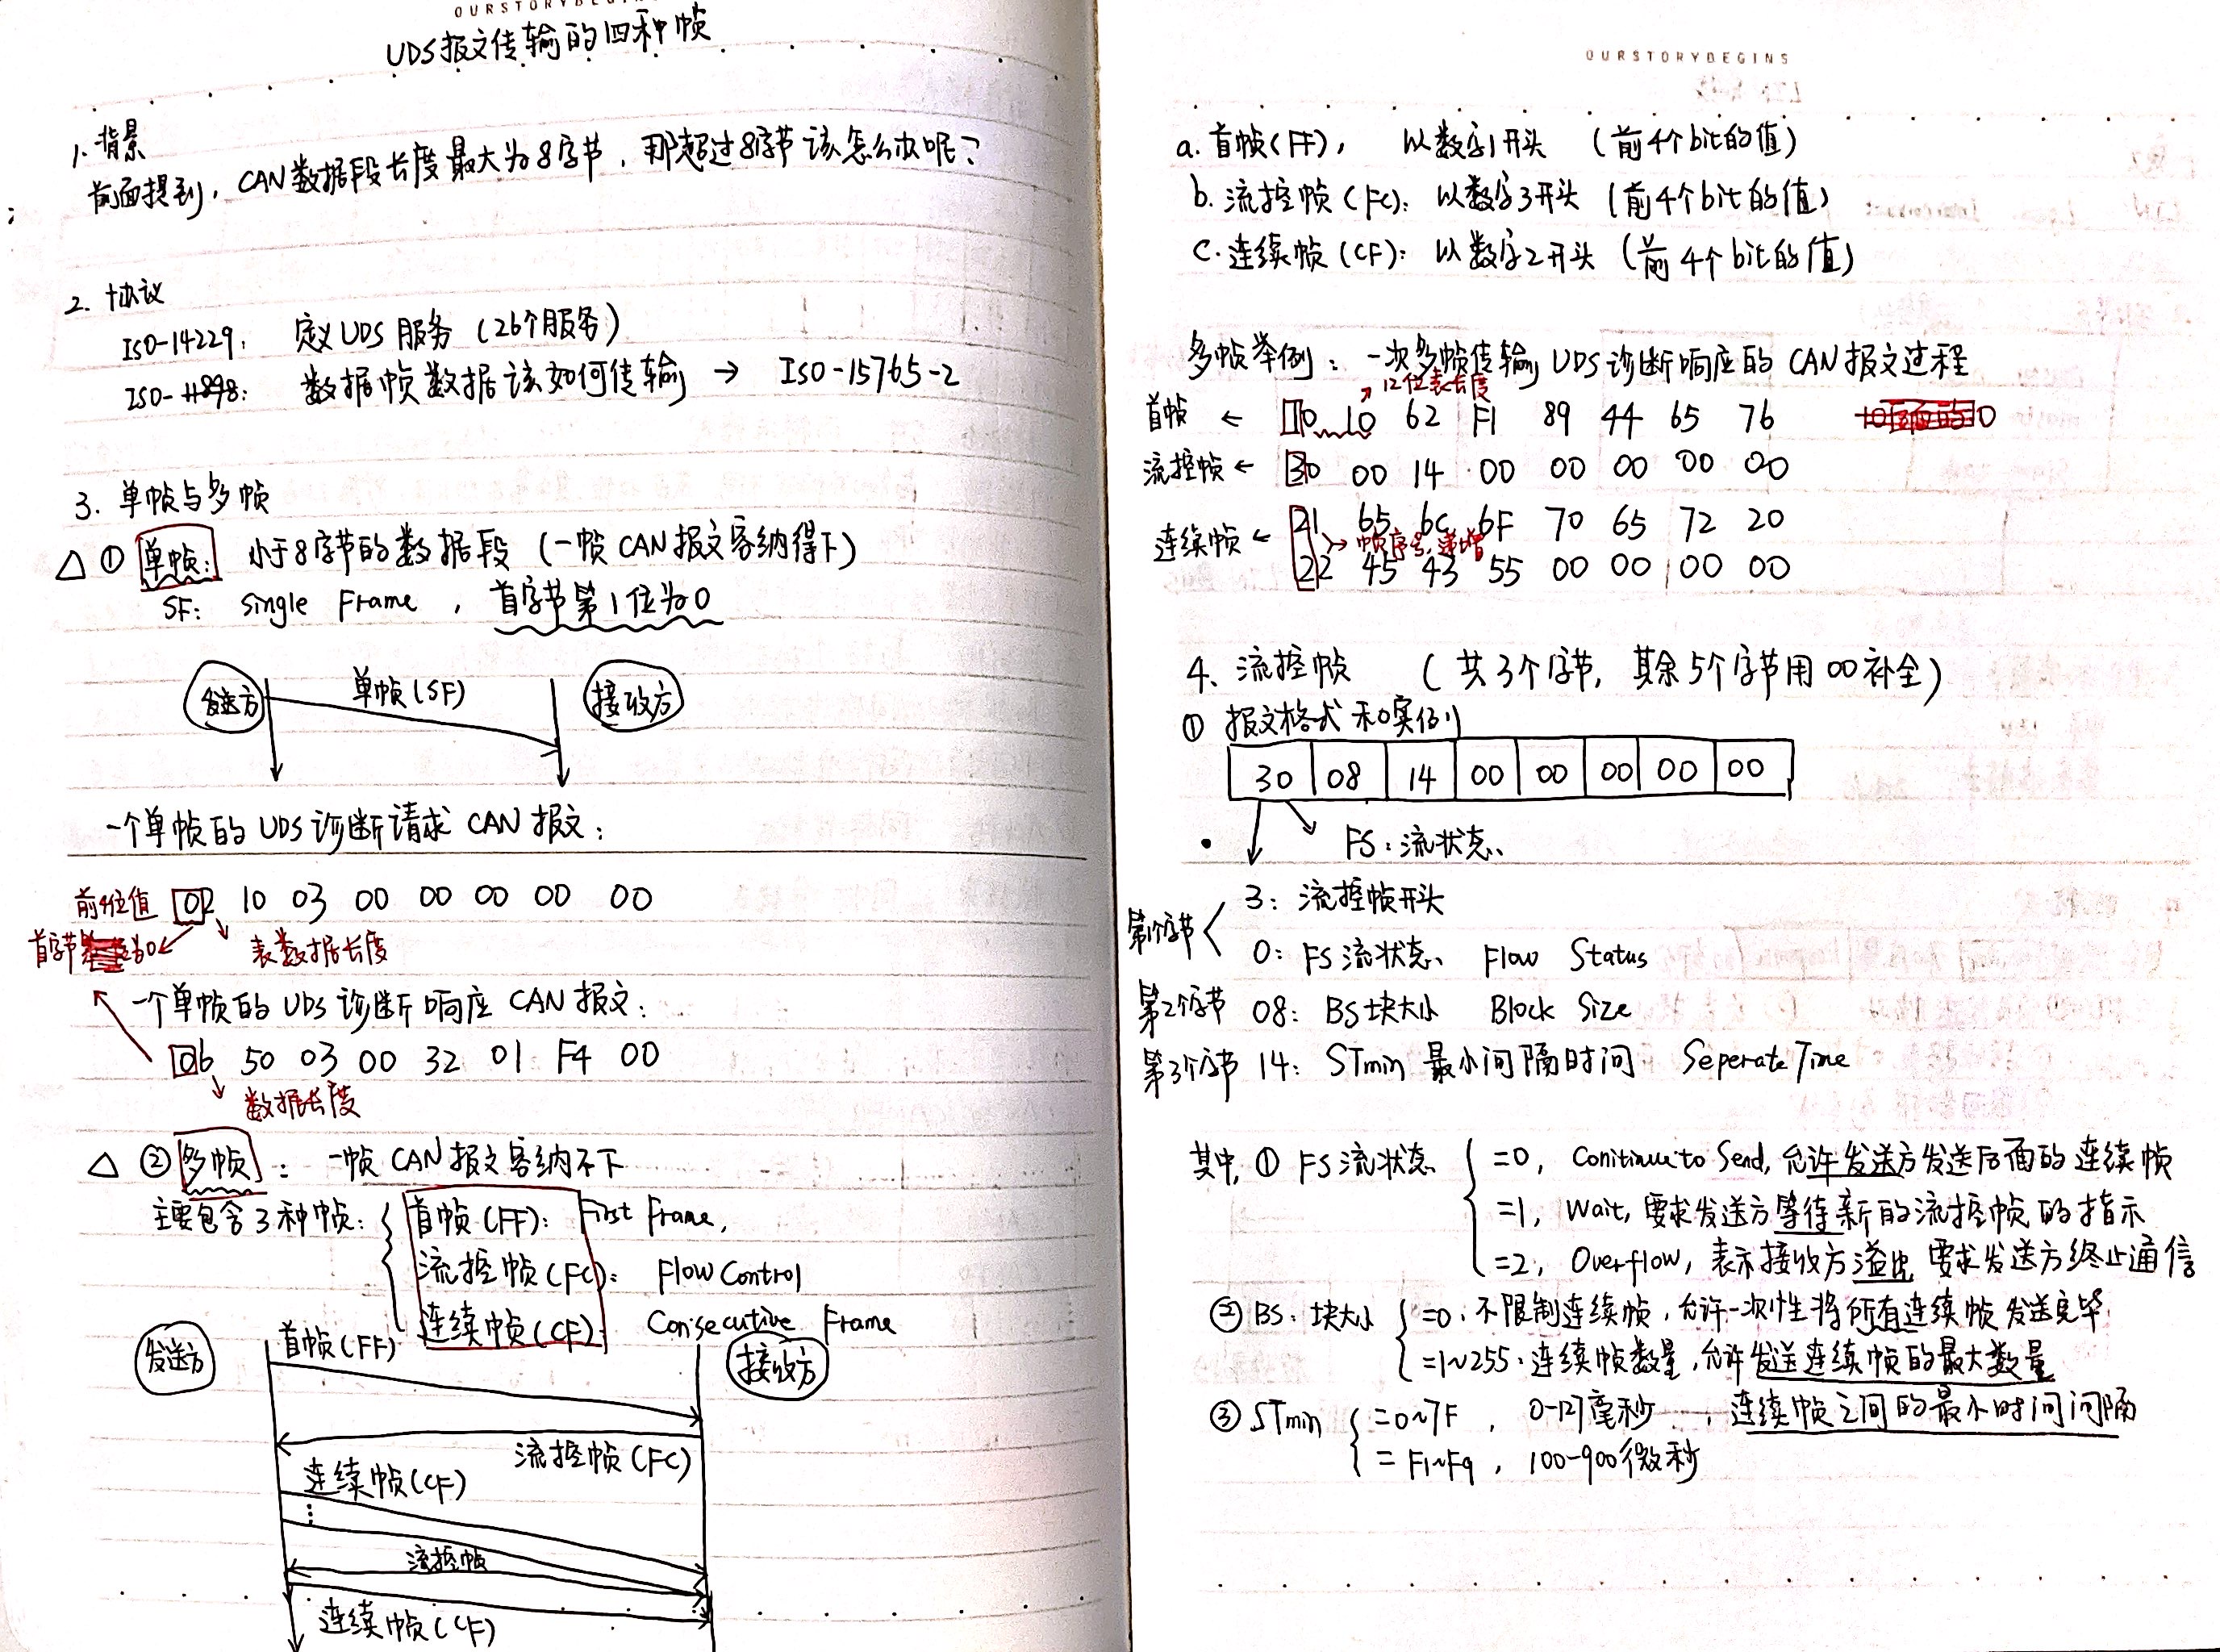 OURSTORYBEGINS
UDS报文传输的四种帧
1. 背景
前面提到，CAN数据段长度最大为8字节，那超过8字节该怎么办呢？
2. 协议
ISO-14229： 定义UDS服务（26个服务）
ISO-11898： 数据帧数据该如何传输 → ISO-15765-2
3. 单帧与多帧
△ ① 单帧： 小于8字节的数据段（一帧CAN报文容纳得下）
SF： Single Frame ，首字节第1位为0
发送方 单帧(SF) 接收方
一个单帧的UDS诊断请求CAN报文：
前4位值 02 10 03 00 00 00 00 00
首字节 为0 表数据长度
一个单帧的UDS诊断响应CAN报文：
06 50 03 00 32 01 F4 00
数据长度
△ ② 多帧： 一帧CAN报文容纳不下
主要包含3种帧： 首帧(FF)： First Frame,
流控帧(FC)： Flow Control
连续帧(CF)： Consecutive Frame
发送方 首帧(FF) 接收方
流控帧(FC)
连续帧(CF)
流控帧
连续帧(CF)
OURSTORYBEGINS
a. 首帧(FF)， 以数字1开头 （前4个bit的值）
b. 流控帧(FC)： 以数字3开头（前4个bit的值）
c. 连续帧(CF)： 以数字2开头（前4个bit的值）
多帧举例：一次多帧传输UDS诊断响应的CAN报文过程
12位表长度
首帧 ← 10 10 62 F1 89 44 65 76
流控帧 ← 30 00 14 00 00 00 00 00
连续帧 ← 21 65 6C 6F 70 65 72 20
帧序号，递增
22 45 43 55 00 00 00 00
4、流控帧 （共3个字节，其余5个字节用00补全）
① 报文格式和实例
30 08 14 00 00 00 00 00
FS：流状态
第1个字节 3：流控帧开头
0：FS流状态、 Flow Status
第2个字节 08： BS块大小 Block Size
第3个字节 14： STmin 最小间隔时间 Seperate Time
其中，① FS流状态 =0， Conitinue to Send, 允许发送方发送后面的连续帧
=1， Wait, 要求发送方等待新的流控帧的指示
=2， Overflow，表示接收方溢出，要求发送方终止通信
② BS：块大小 =0，不限制连续帧，允许一次性将所有连续帧发送完毕
=1~255，连续帧数量，允许发送连续帧的最大数量
③ STmin =0~7F ， 0-127毫秒 ，连续帧之间的最小时间间隔
= F1~F9 ， 100-900微秒